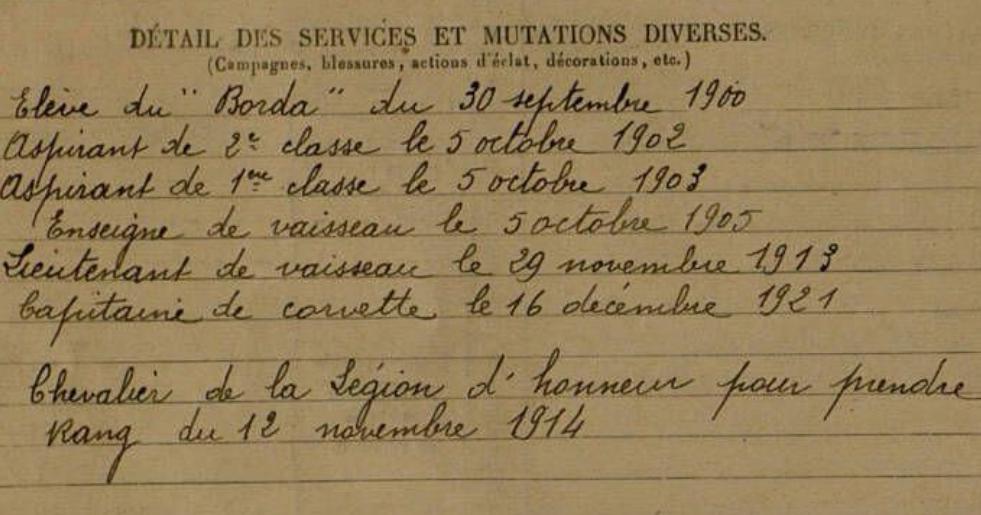 DÉTAIL DES SERVICES ET MUTATIONS DIVERSES.
(Campagnes, blessures, actions d'éclat, décorations, etc.)
Elève du "Borda" du 30 septembre 1900
Aspirant de 2e classe le 5 octobre 1902
Aspirant de 1ère classe le 5 octobre 1903
Enseigne de vaisseau le 5 octobre 1905
Lieutenant de vaisseau le 29 novembre 1913
Capitaine de corvette le 16 décembre 1921
Chevalier de la Légion d'honneur pour prendre
Rang du 12 novembre 1914